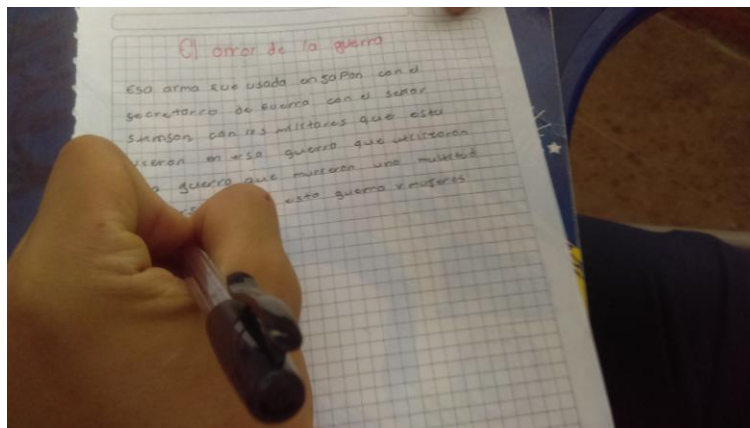 El orror de la guerra
Esa arma que usada en japon con el
secretareo de guerra con el señor
stimson con los militares que esta
en esa guerra que utilizaron
guerra que murieron una multitud
esta guerra y mujeres